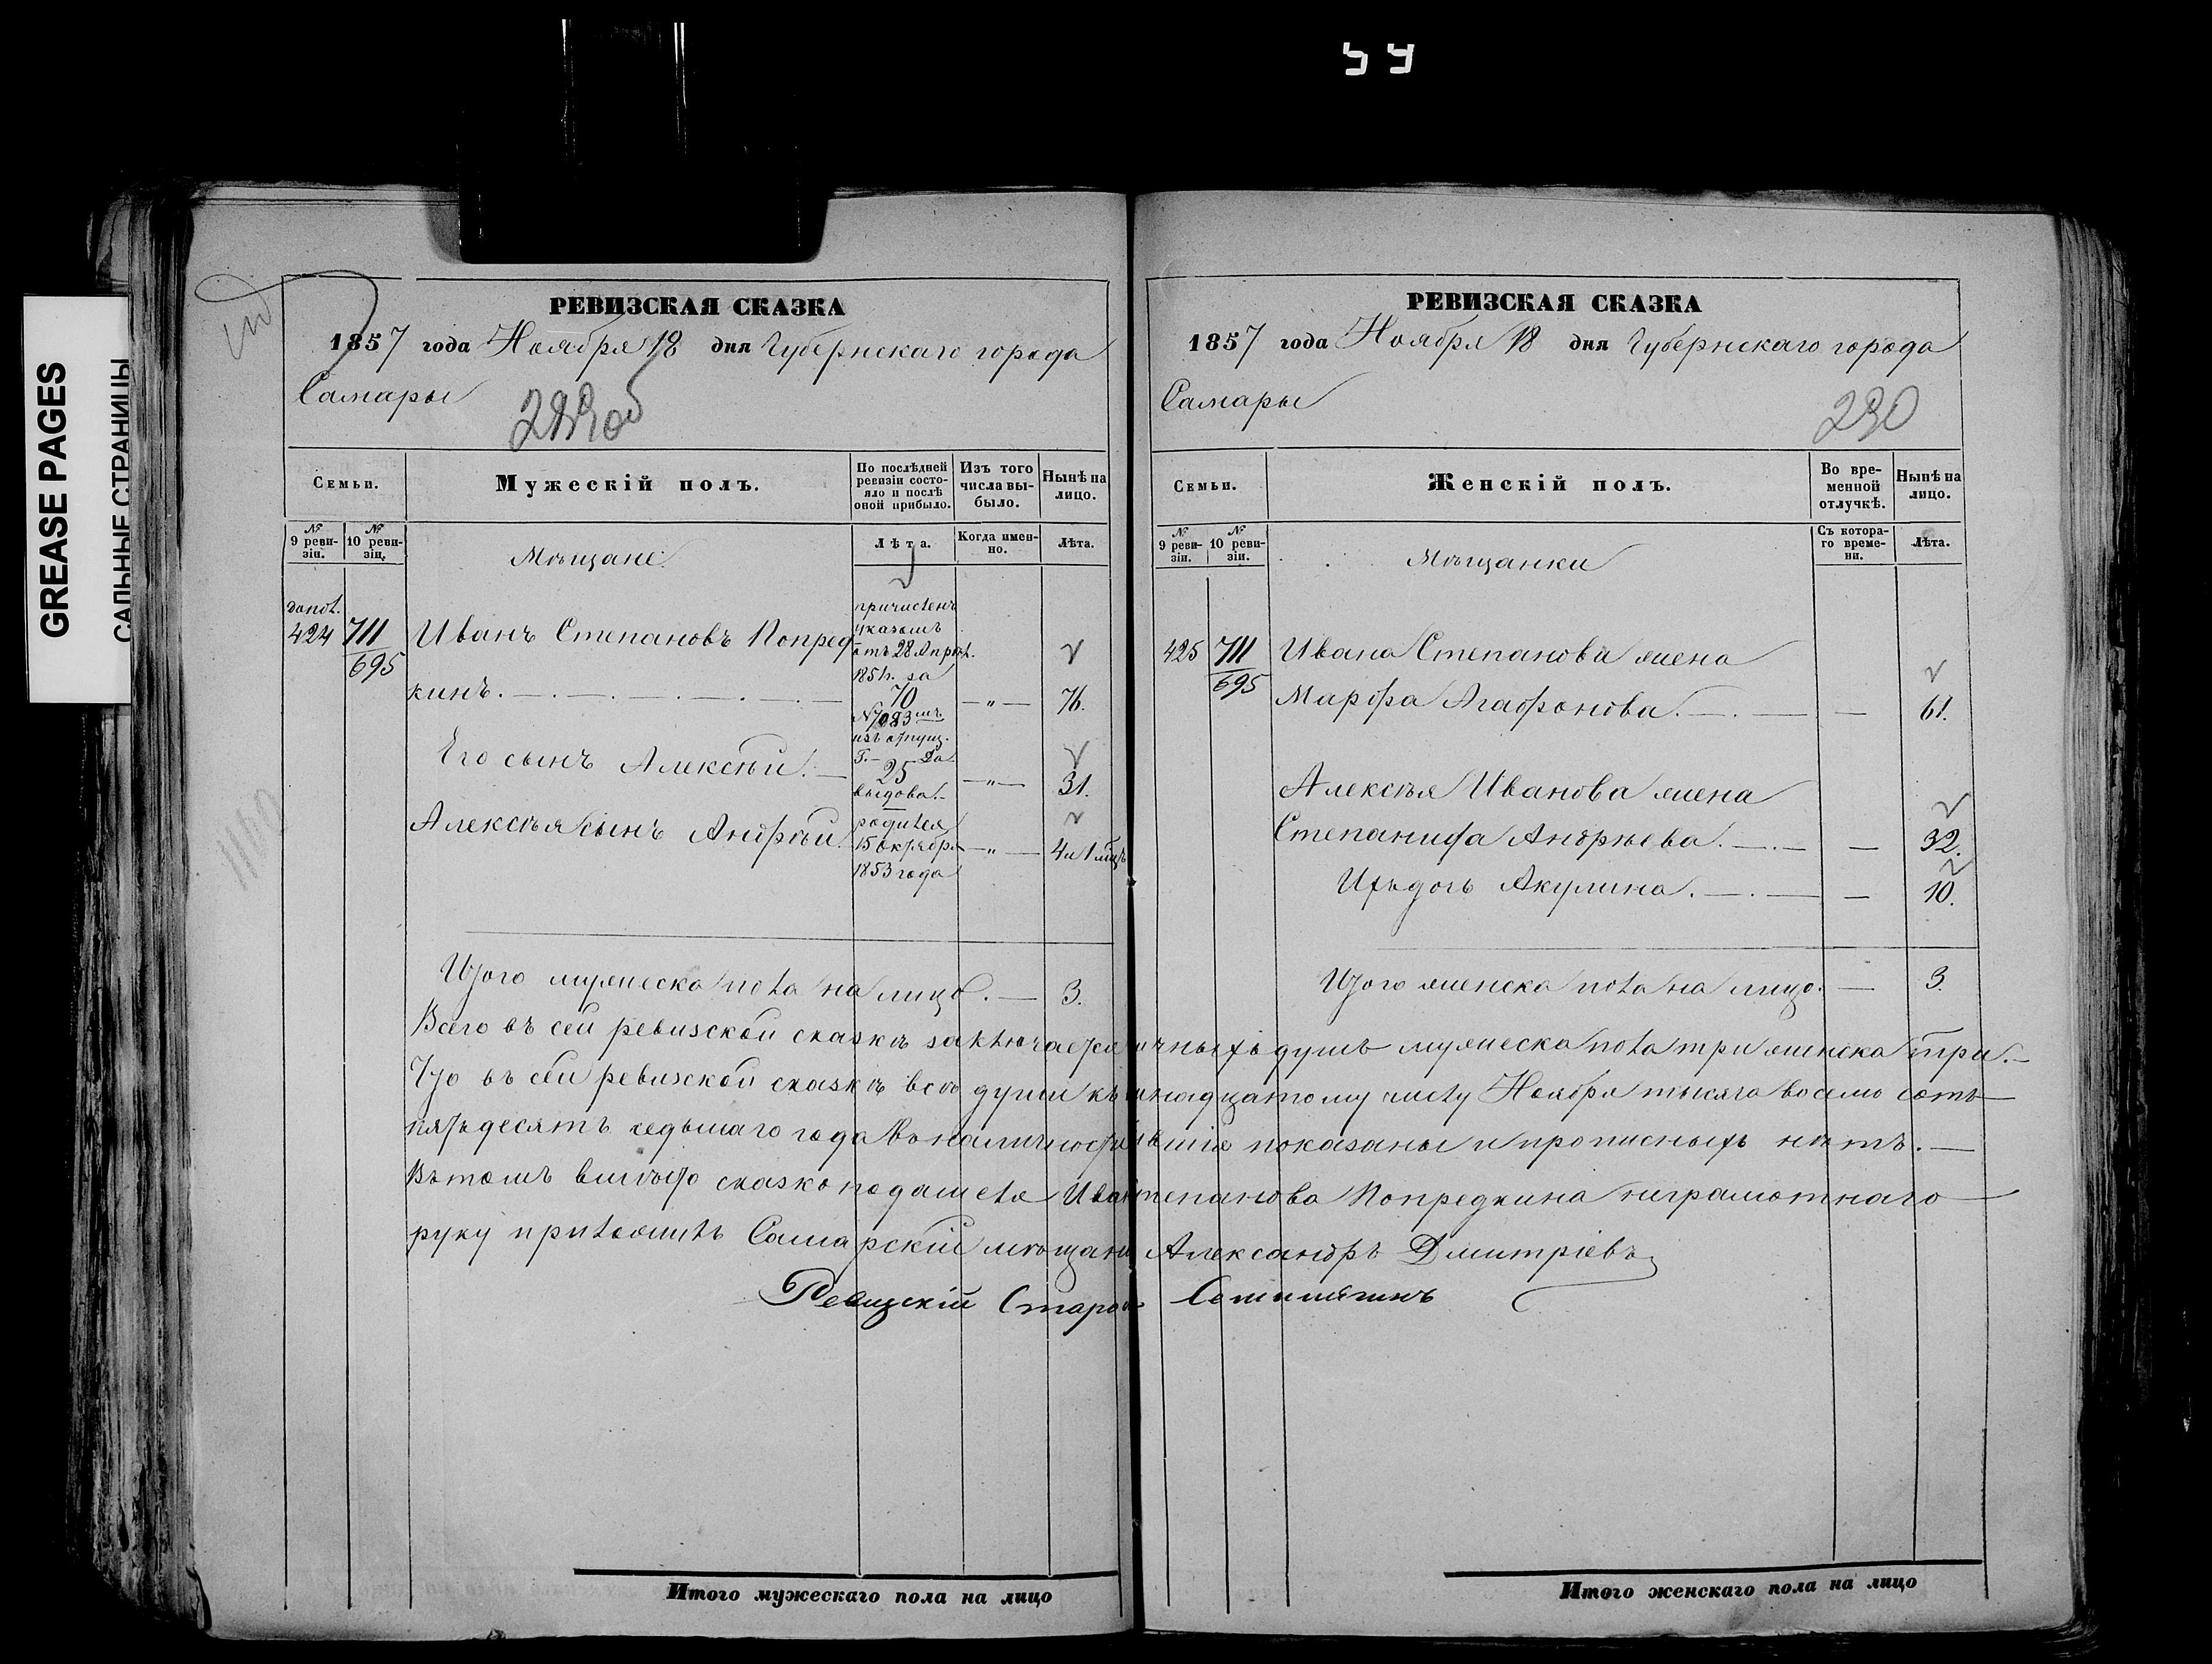 GREASE PAGES
САЛЬНЫЕ СТРАНИЦЫ
59
РЕВИЗСКАЯ СКАЗКА
1857 года Ноября 18 дня Губернскаго города
Самары
229об
Семьи.
Мужескій полъ.
По послѣдней ревизіи состояло и послѣ оной прибыло.
Изъ того числа выбыло.
Нынѣ на лицо.
№ 9 ревизіи.
№ 10 ревизіи.
Мѣщане
Лѣта.
Когда именно.
Лѣта.
допол.
424 711 Иванъ Степановъ Попред
695
кинъ. 76.
причисленъ
указомъ
отъ 28 Апрѣл.
70
№ 7083
Его сынъ Алексѣй. 31.
25
Алексѣя сынъ Андрѣй. 4 и 1 мцъ
родился
15 октября
1853 года
Итого мужеска пола на лицо. 3.
РЕВИЗСКАЯ СКАЗКА
1857 года Ноября 18 дня Губернскаго города
Самары
230
Семьи.
Женскій полъ.
Во временной отлучкѣ.
Нынѣ на лицо.
№ 9 ревизіи.
№ 10 ревизіи.
Мѣщанки
Съ котораго времени.
Лѣта.
425 711 Ивана Степанова жена
695
Марфа Агафонова. — 61.
Алексѣя Иванова жена
Степанида Андрѣева. — 32.
Ихъ дочь Акулина. — 10.
Итого женска пола на лицо. 3.
Всего въ сей ревизской сказкѣ заключается личныхъ душъ мужеска пола три женска три.
Что въ сей ревизской сказкѣ всѣ души къ надцатому числу Ноября тысяча восемь сотъ
пятьдесятъ седьмаго года во наличности вшія показаны и прописныхъ нѣтъ.
Въ томъ вмѣсто сказкоподателя Ивана Степанова Попредкина неграмотнаго
руку приложилъ Самарскій мѣщанинъ Александръ Дмитріевъ
Ревизскій Староста
Итого мужескаго пола на лицо
Итого женскаго пола на лицо